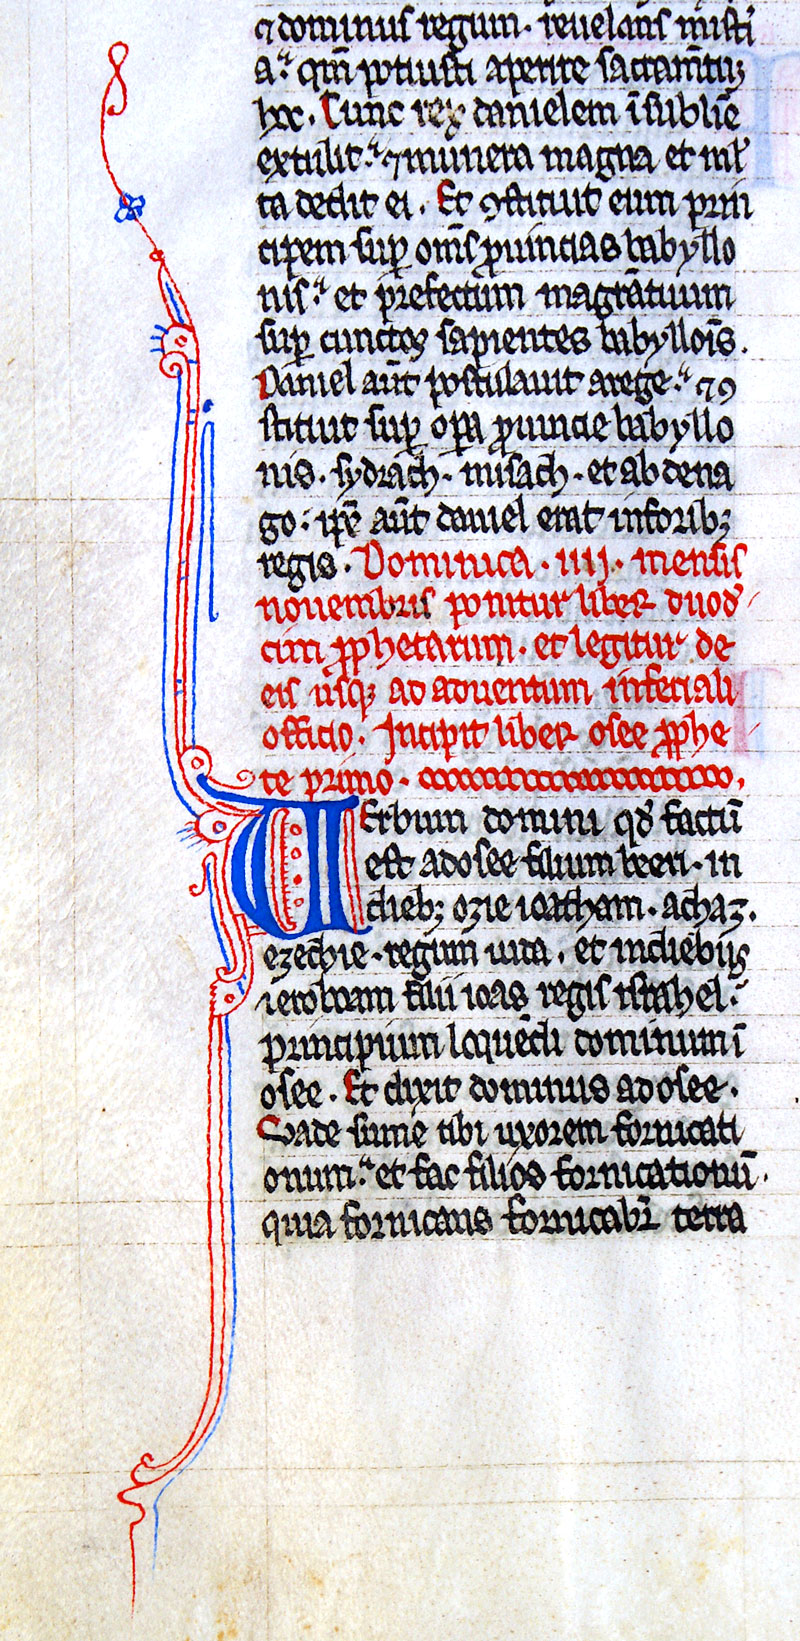 ⁊ dominus regum. reuelans misti
a. qm̄ potuisti aperire sacramētuꝫ
hoc. Tunc rex danielem ī sublīe
extulit. ⁊ munera magna et ml̄
ta dedit ei. Et ꝯstituit eum prin
cipem suꝑ om̄s ꝓuincias babyllo
nis. et prefectum magrātuum
suꝑ cunctoꝫ sapientes babyllōis.
Daniel aūt postulauit arege. ⁊ ꝯ
stituit suꝑ oꝑa ꝓuincie babyllo
nis. sydrach. misach. et abdena
go. ip̄e aūt daniel erat inforibꝫ
regis. Dominica. iiij. mensis
nouembris ponitur liber duod
cim ꝓphetarum. et legitur de
eis usqꝫ ad aduentum inferiali
officio. Incipit liber osee ꝓphe
te primo.
UErbum domini qd̄ factū
est adosee filium beeri. in
diebꝫ ozie ioatham. achaz.
ezechie. regum iuda. et indiebus
ieroboam filii ioas regis israhel.
principium loquēdi dominum ī
osee. Et dixit dominus ad osee.
Vade sume tibi uxorem fornicati
onum. et fac filios fornicationū.
quia fornicans fornicabr̄ terra